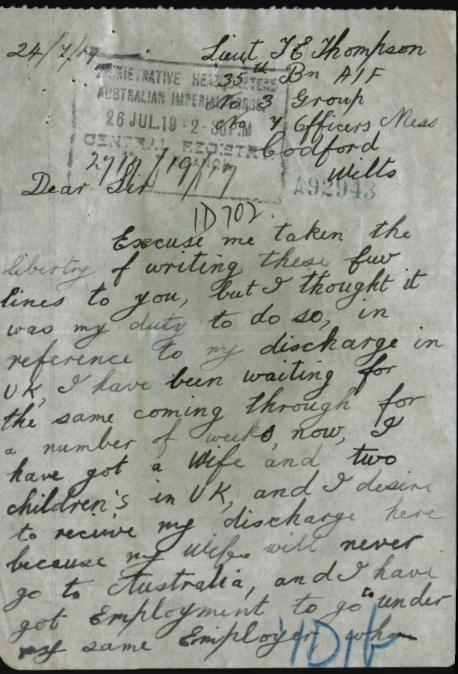 24/7/19
Lieut T E Thompson
35th Bn AIF
No 3 Group
No 4 Officers Mess
Codford
Wilts
ADMINISTRATIVE HEADQUARTERS
AUSTRALIAN IMPERIAL FORCE
26 JUL.19 - 2 - 30 P.M
CENTRAL REGISTRY
A92943
Dear Sir
1D702.
Excuse me taken the
liberty of writing these few
lines to you, but I thought it
was my duty to do so, in
reference to my discharge in
UK, I have been waiting for
the same coming through for
a number of weeks, now, I
have got a Wife and two
children's in UK, and I desire
to recieve my discharge here
because my Wife will never
go to Australia, and I have
got Employment to go to under
my same Employer who